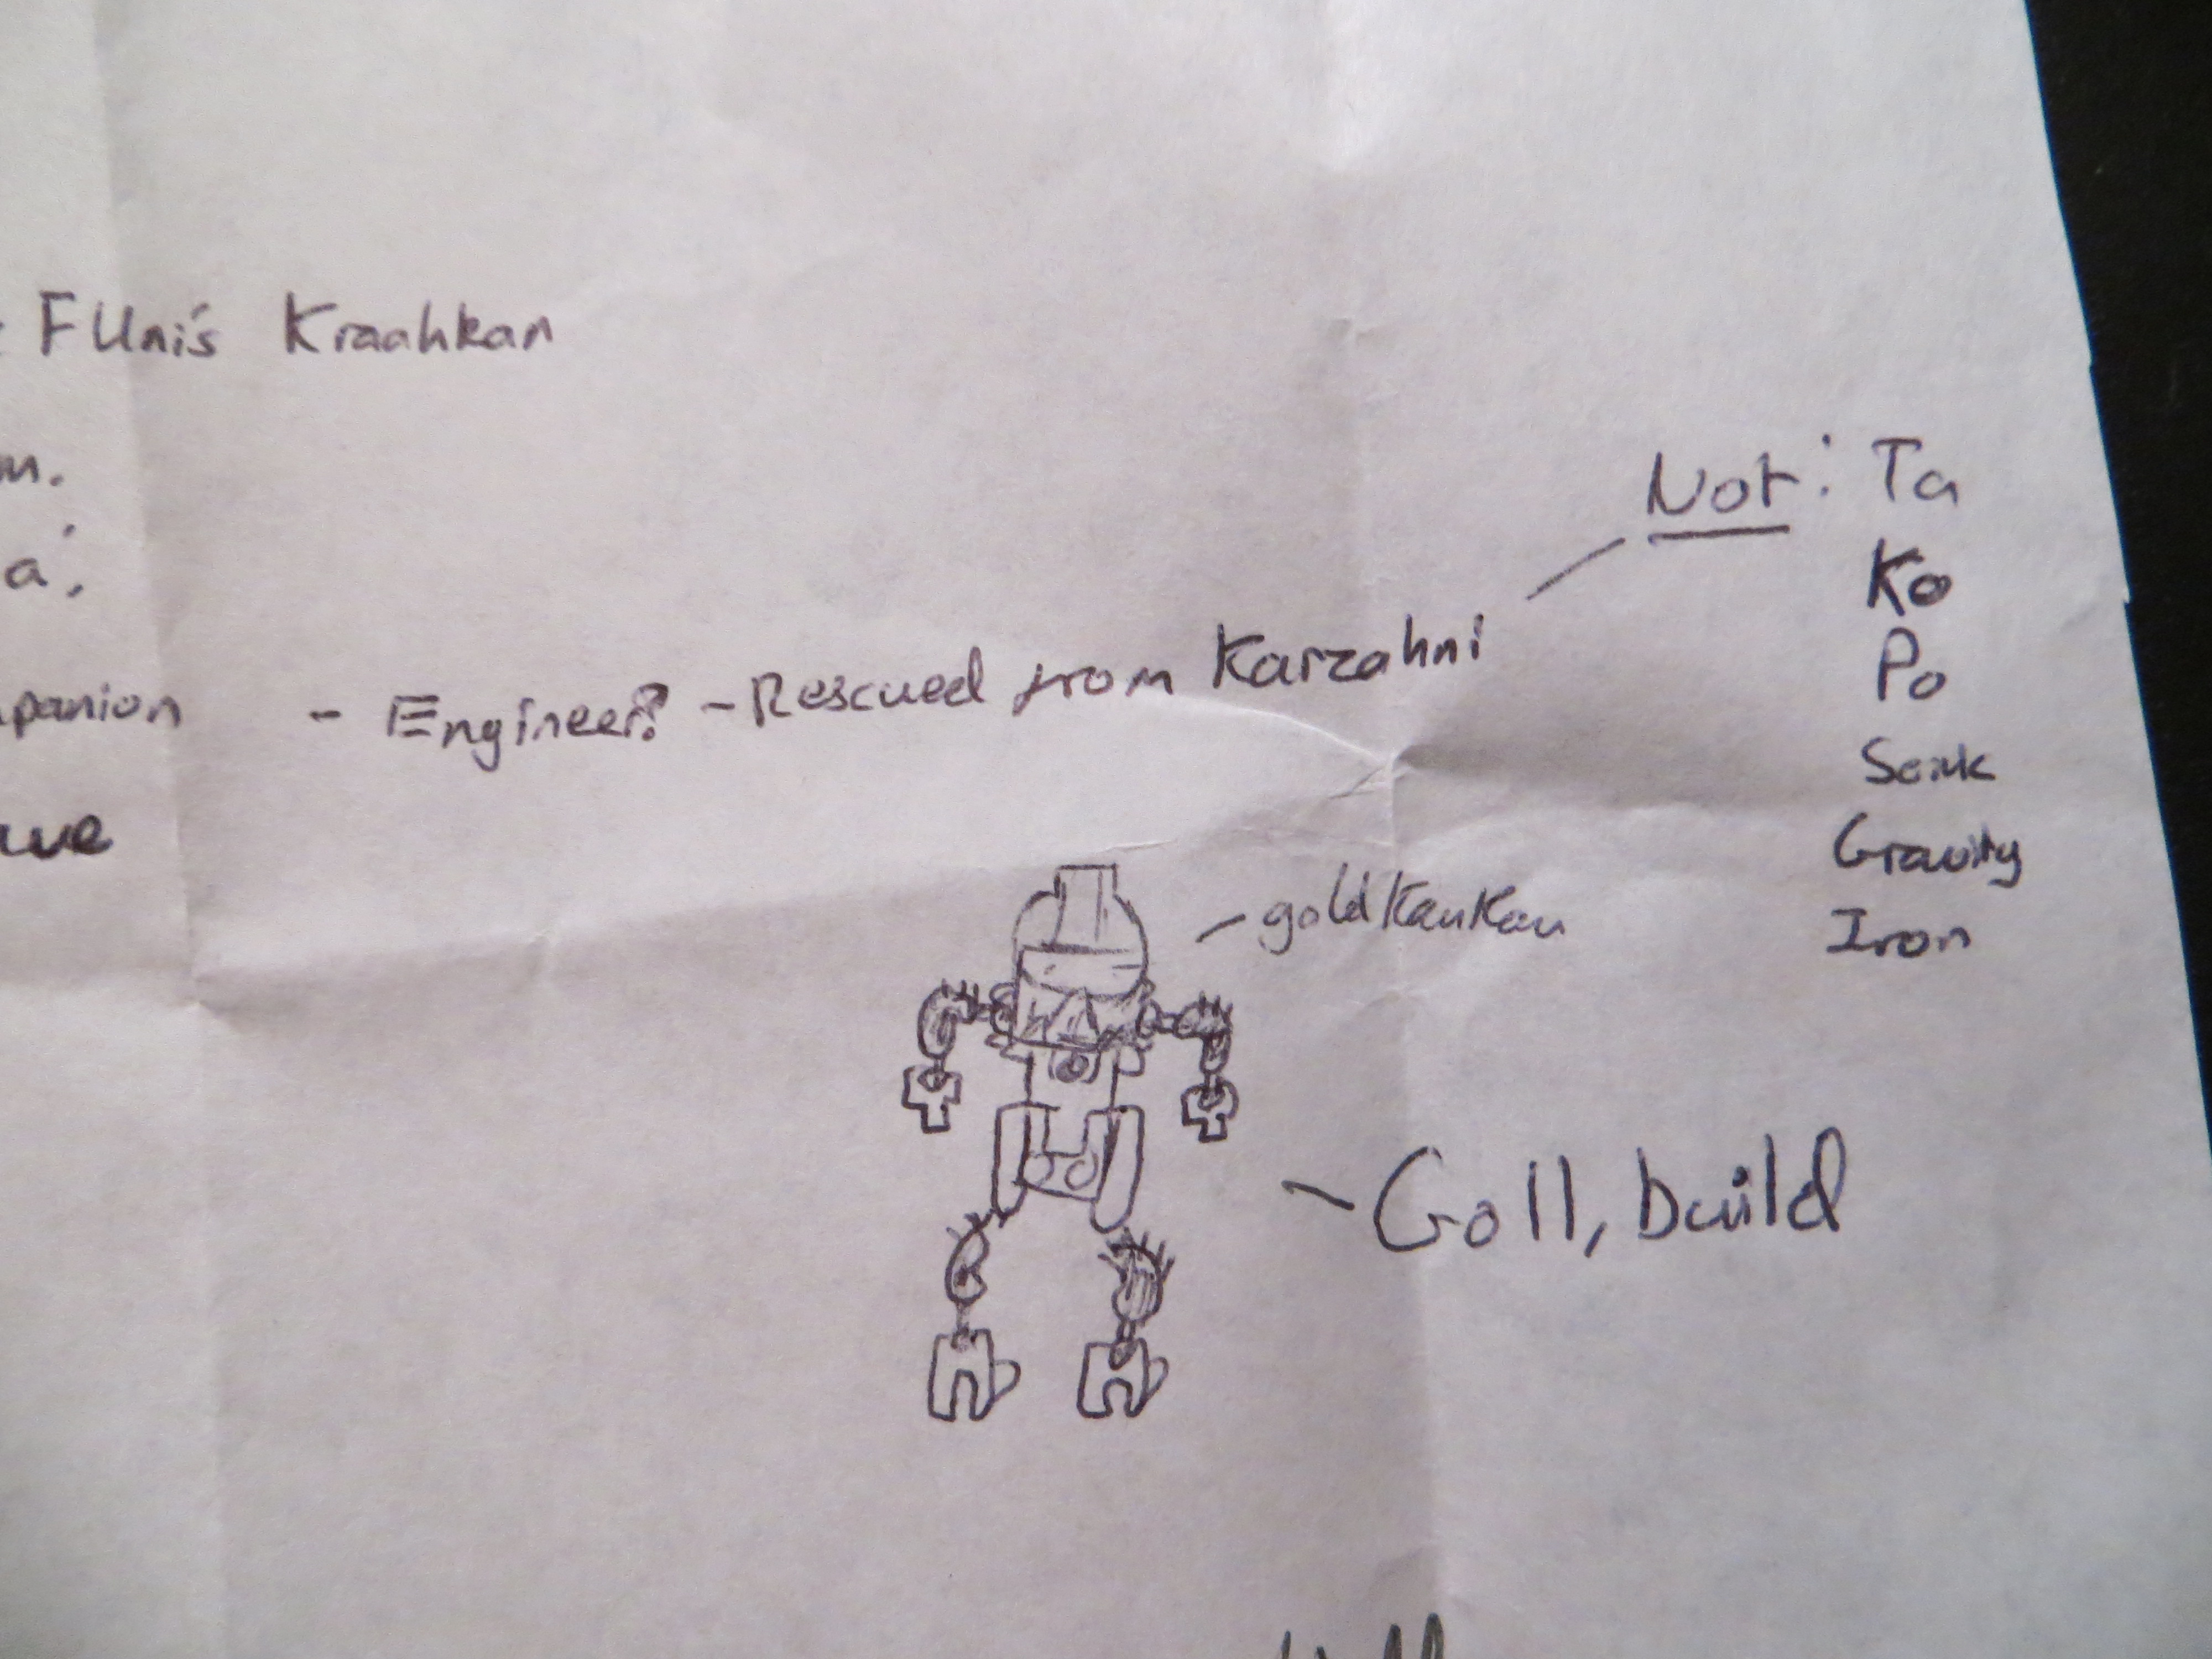 FUni's Kraahkan
m.
a'.
panion - Engineer? - Rescued from Karzahni
Not: Ta
Ko
Po
Gravity
Iron
gold Kaukau
- Goll, build